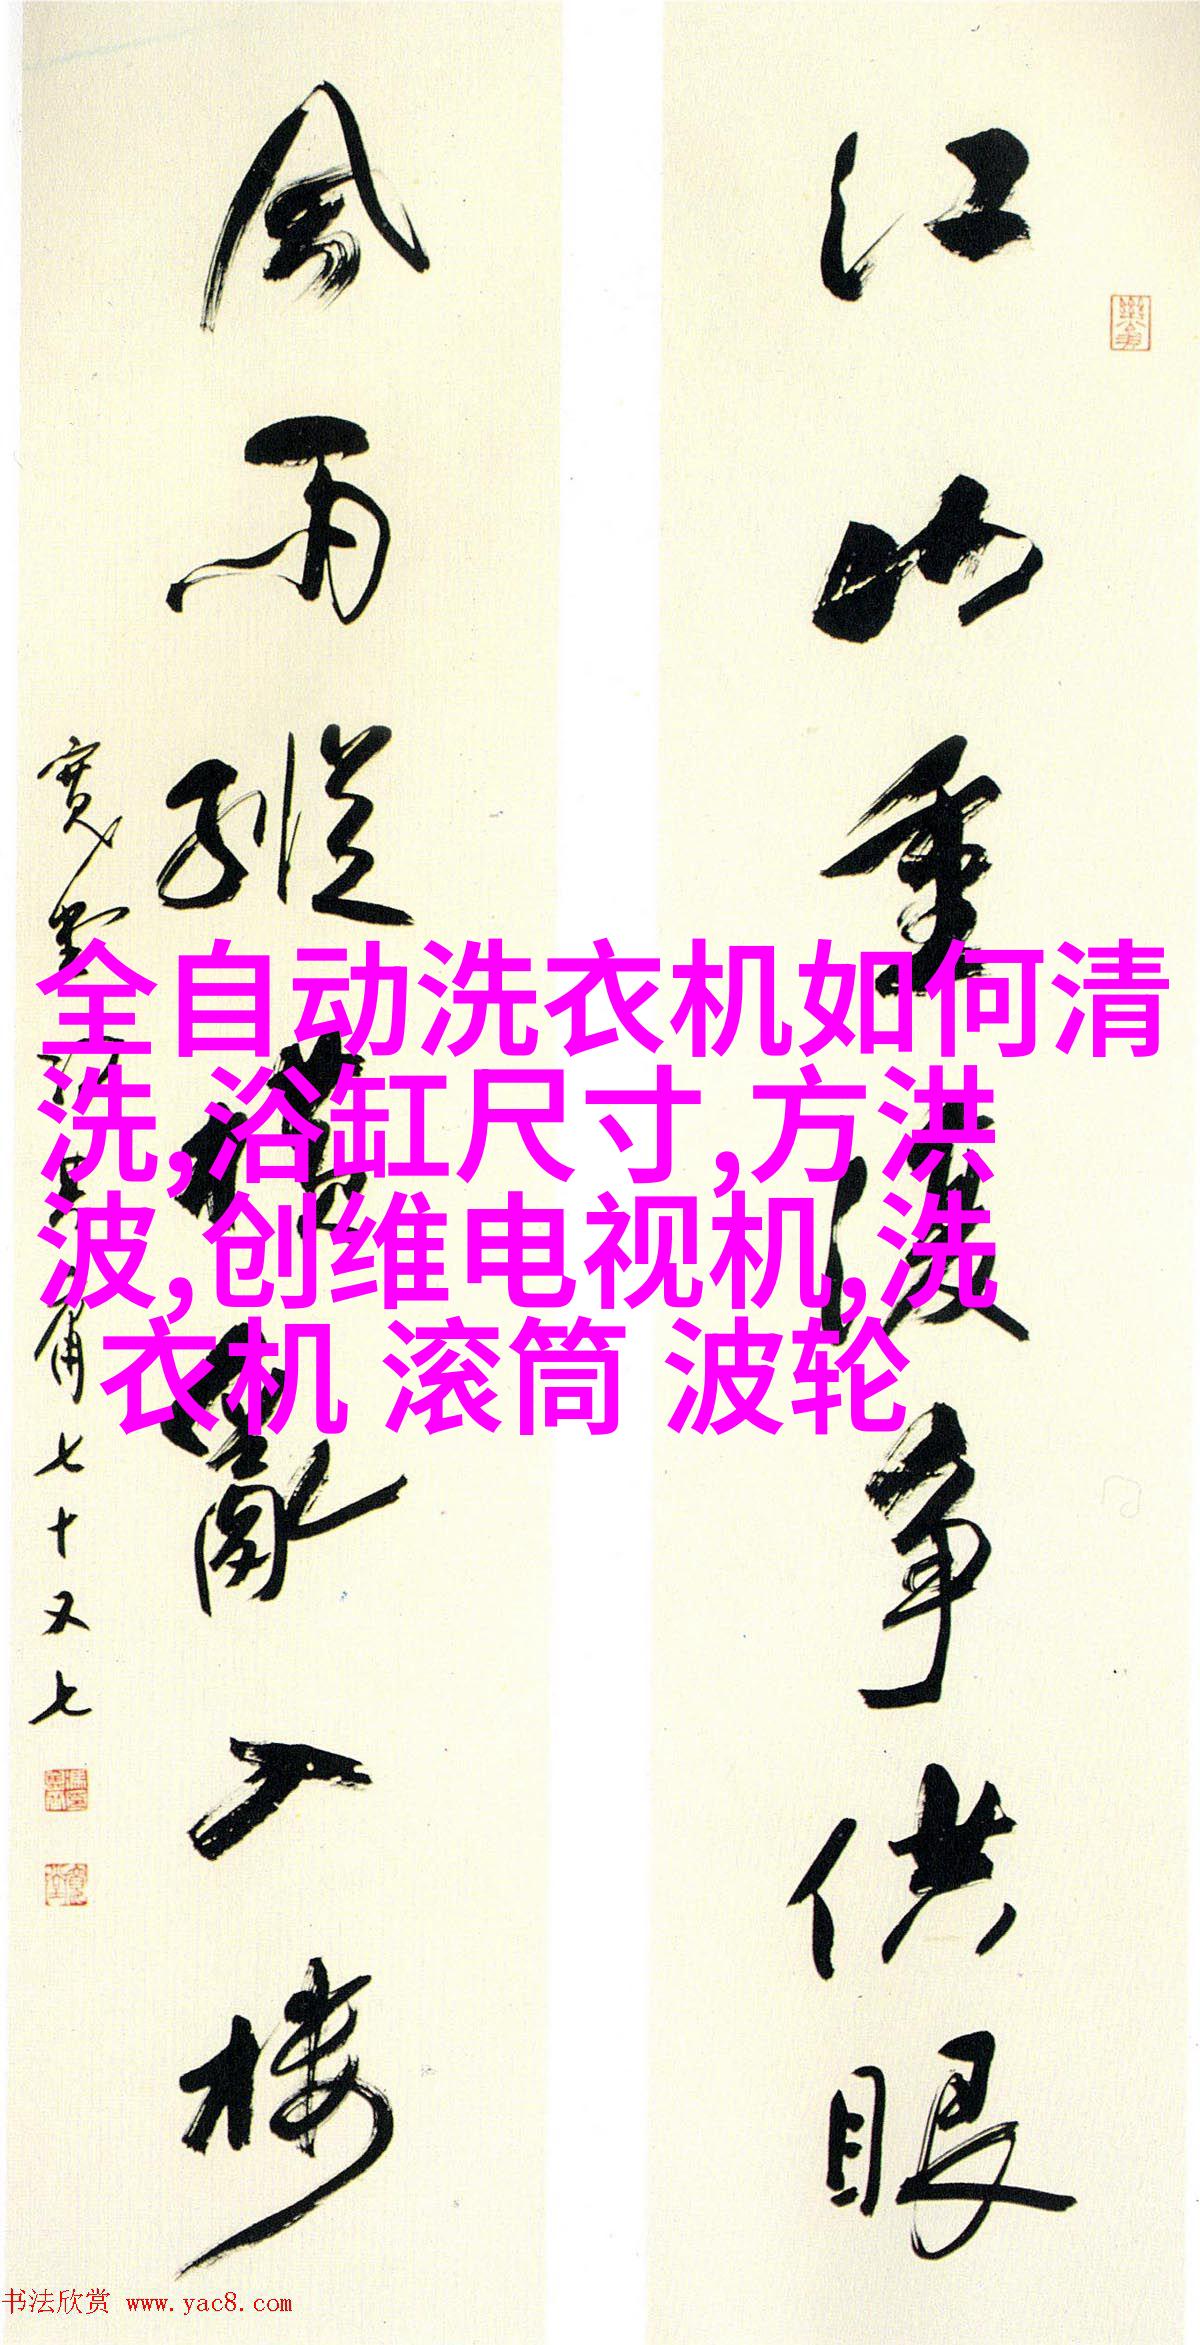 江山重複争供眼
風雨縱橫亂入楼
七十又七
全自动洗衣机如何清
洗,浴缸尺寸,方洪
波,创维电视机,洗
衣机 滚筒 波轮
书法欣赏 www.yac8.com